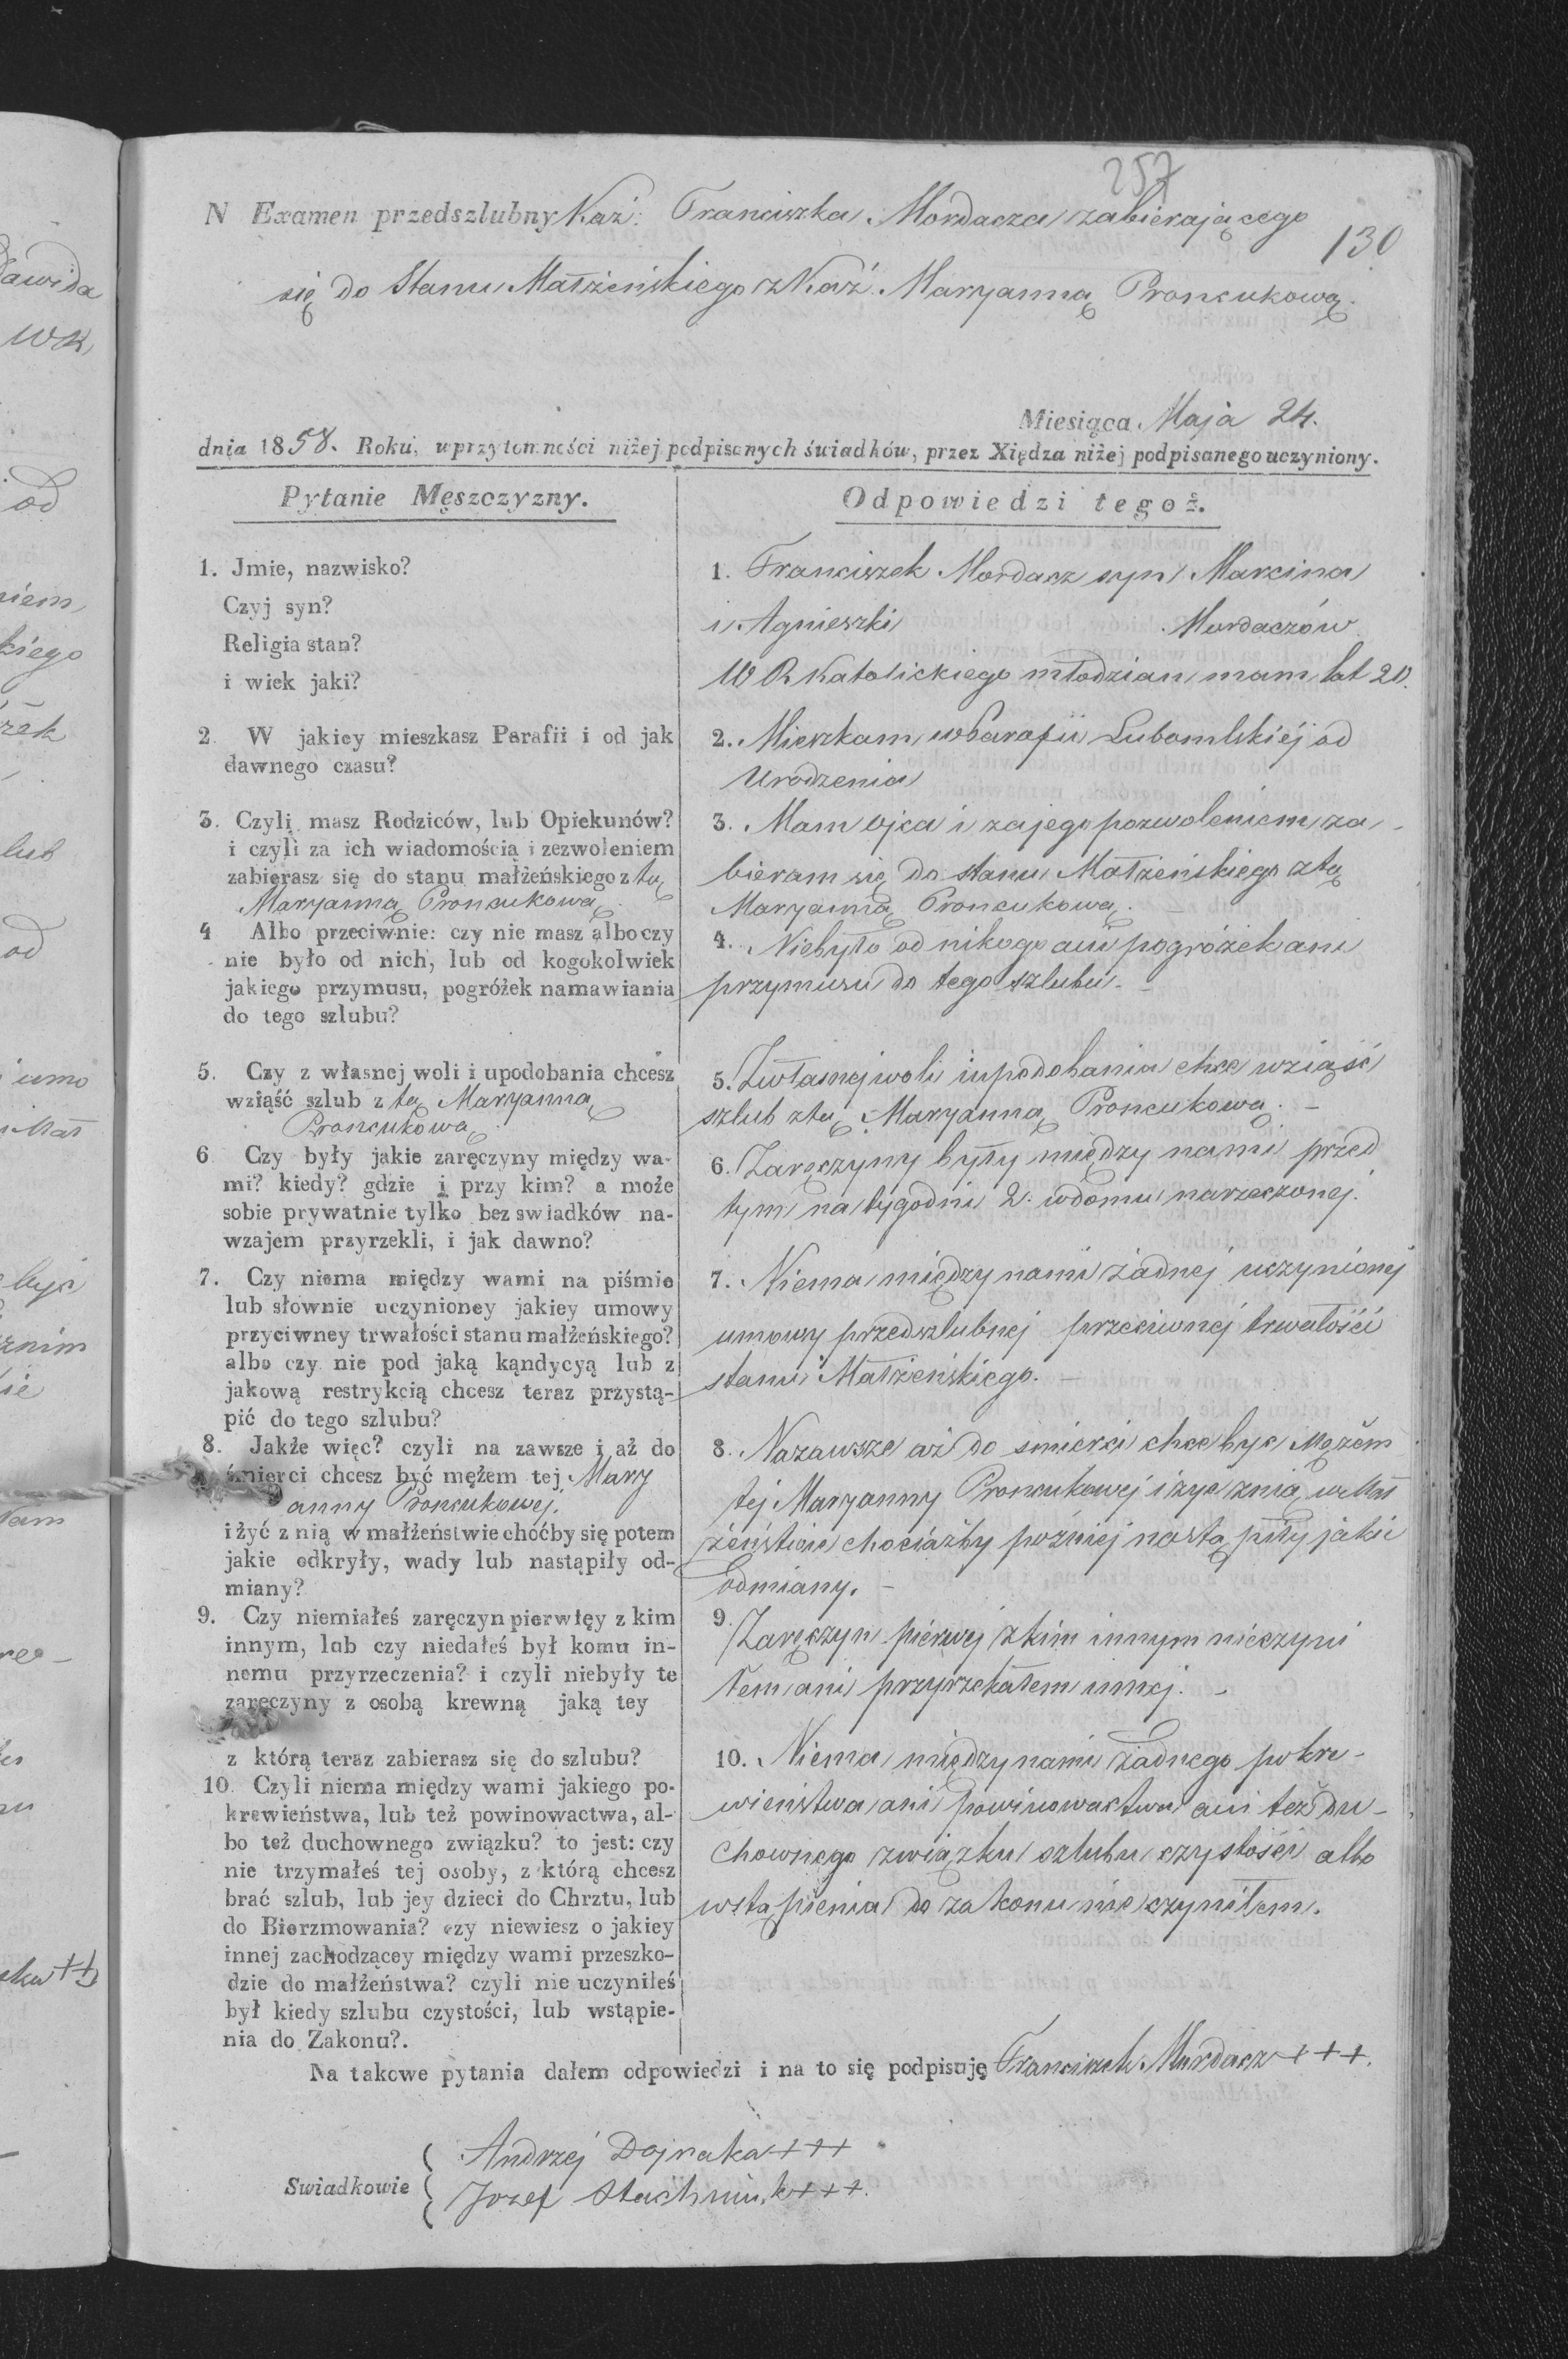 257
N Examen przedszlubny Kaź: Franciszka Mordacza zabierającego
130
się do Stanu Małżeńskiego z Kaź. Maryanną Proncukową.
Miesiąca Maja 24.
dnia 1858. Roku, w przytomności niżej podpisanych świadków, przez Xiędza niżej podpisanego uczyniony.
Pytanie Męszczyzny.
Odpowiedzi tegoż.
1. Jmie, nazwisko?
Czyj syn?
Religia stan?
i wiek jaki?
1. Franciszek Mordacz syn Marcina
i Agnieszki Mordaczów
W R Katolickiego młodzian mam lat 20.
2. W jakiey mieszkasz Parafii i od jak
dawnego czasu?
2. Mieszkam w Parafii Lubomlskiéj od
Urodzenia
3. Czyli masz Rodziców, lub Opiekunów?
i czyli za ich wiadomością i zezwoleniem
zabierasz się do stanu małżeńskiego z tą
Maryanną Proncukową.
3. Mam ojca i za jego pozwoleniem za-
bieram się do stanu Małżeńskiego z tą
Maryanną Proncukową.
4 Albo przeciwnie: czy nie masz albo czy
nie było od nich, lub od kogokolwiek
jakiego przymusu, pogróżek namawiania
do tego szlubu?
4. Niebyło od nikogo ani pogróżek ani
przymusu do tego szlubu. -
5. Czy z własnej woli i upodobania chcesz
wziąść szlub z tą Maryanną
Proncukową.
5. Z własnej woli i upodobania chce wziąść
szlub z tą Maryanną Proncukową. -
6 Czy były jakie zaręczyny między wa-
mi? kiedy? gdzie i przy kim? a może
sobie prywatnie tylko bez swiadków na-
wzajem przyrzekli, i jak dawno?
6. Zaręczyny były między nami przed
tym na tygodni 2. w domu narzeczonej.
7. Czy niema między wami na piśmie
lub słownie uczynioney jakiey umowy
przyciwney trwałości stanu małżeńskiego?
albo czy nie pod jaką kąndycyą lub z
jakową restrykcią chcesz teraz przystą-
pić do tego szlubu?
7. Niema między nami żadnej uczynionej
umowy przedszlubnej przeciwnéj trwałości
stanu Małżeńskiego. -
8. Jakże więc? czyli na zawsze i aż do
śmierci chcesz być mężem tej Mary
anny Proncukowej.
i żyć z nią w małżeństwie choćby się potem
jakie odkryły, wady lub nastąpiły od-
miany?
8. Nazawsze aż do smierci chce być Mężem
tej Maryanny Proncukowej i żyć z nią w Mał
żeństwie chociażby poźniej nastąpiły jakie
odmiany. -
9. Czy niemiałeś zaręczyn pierwłęy z kim
innym, lub czy niedałeś był komu in-
nemu przyrzeczenia? i czyli niebyły te
zaręczyny z osobą krewną jaką tey
z którą teraz zabierasz się do szlubu?
9. Zaręczyn piérwej z kim innym nieczyni
łem ani przyrzekałem innej. -
10. Czyli niema między wami jakiego po-
krewieństwa, lub też powinowactwa, al-
bo też duchownego związku? to jest: czy
nie trzymałeś tej osoby, z którą chcesz
brać szlub, lub jey dzieci do Chrztu, lub
do Bierzmowania? czy niewiesz o jakiey
innej zachodzącey między wami przeszko-
dzie do małżeństwa? czyli nie uczyniłeś
był kiedy szlubu czystości, lub wstąpie-
nia do Zakonu?.
10. Niema między nami żadnego pokre-
wieństwa ani powinowactwa ani też du-
chownego związku szlubu czystości albo
wstąpienia do zakonu nie czyniłem.
Na takowe pytania dałem odpowiedzi i na to się podpisuję Franciszek Mordacz +++.
Swiadkowie
Andrzej Dojnaka +++
Jozef Stachniuk +++.